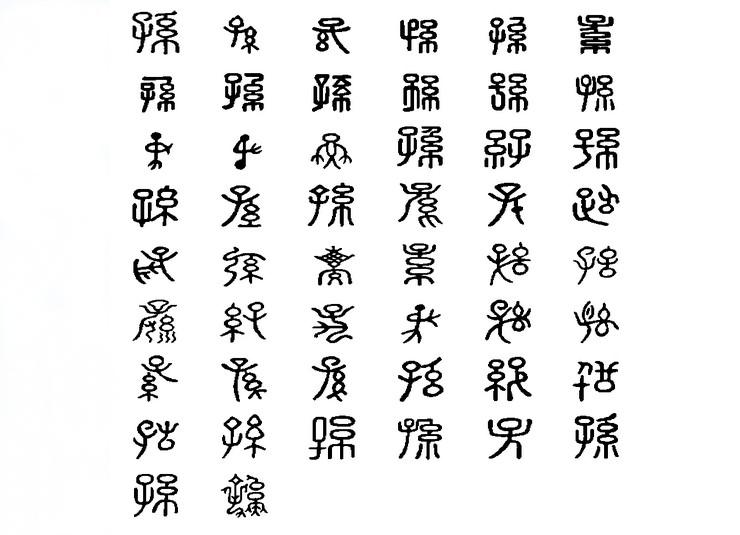 孫 孫 孫 孫 孫 孫
孫 孫 孫 孫 孫 孫
孫 孫 孫 孫 孫 孫
孫 孫 孫 孫 孫 孫
孫 孫 孫 孫 孫 孫
孫 孫 孫 孫 孫 孫
孫 孫 孫 孫 孫 孫
孫 孫 孫 孫 孫 孫
孫 孫